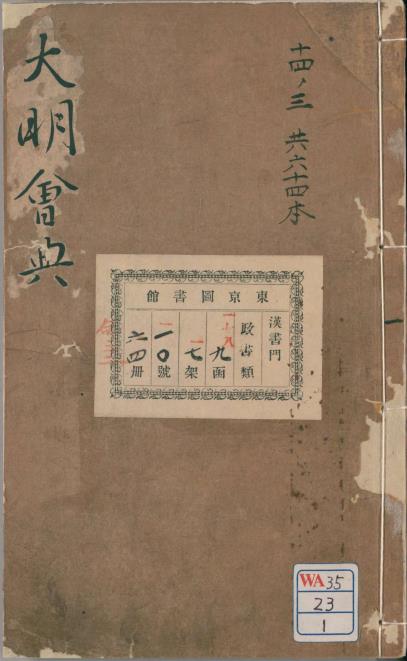 大明會典
十四ノ三 共六十四本
東京圖書館
漢書門
政書類
九函
七架
一〇號
六四冊
一
WA35
23
1